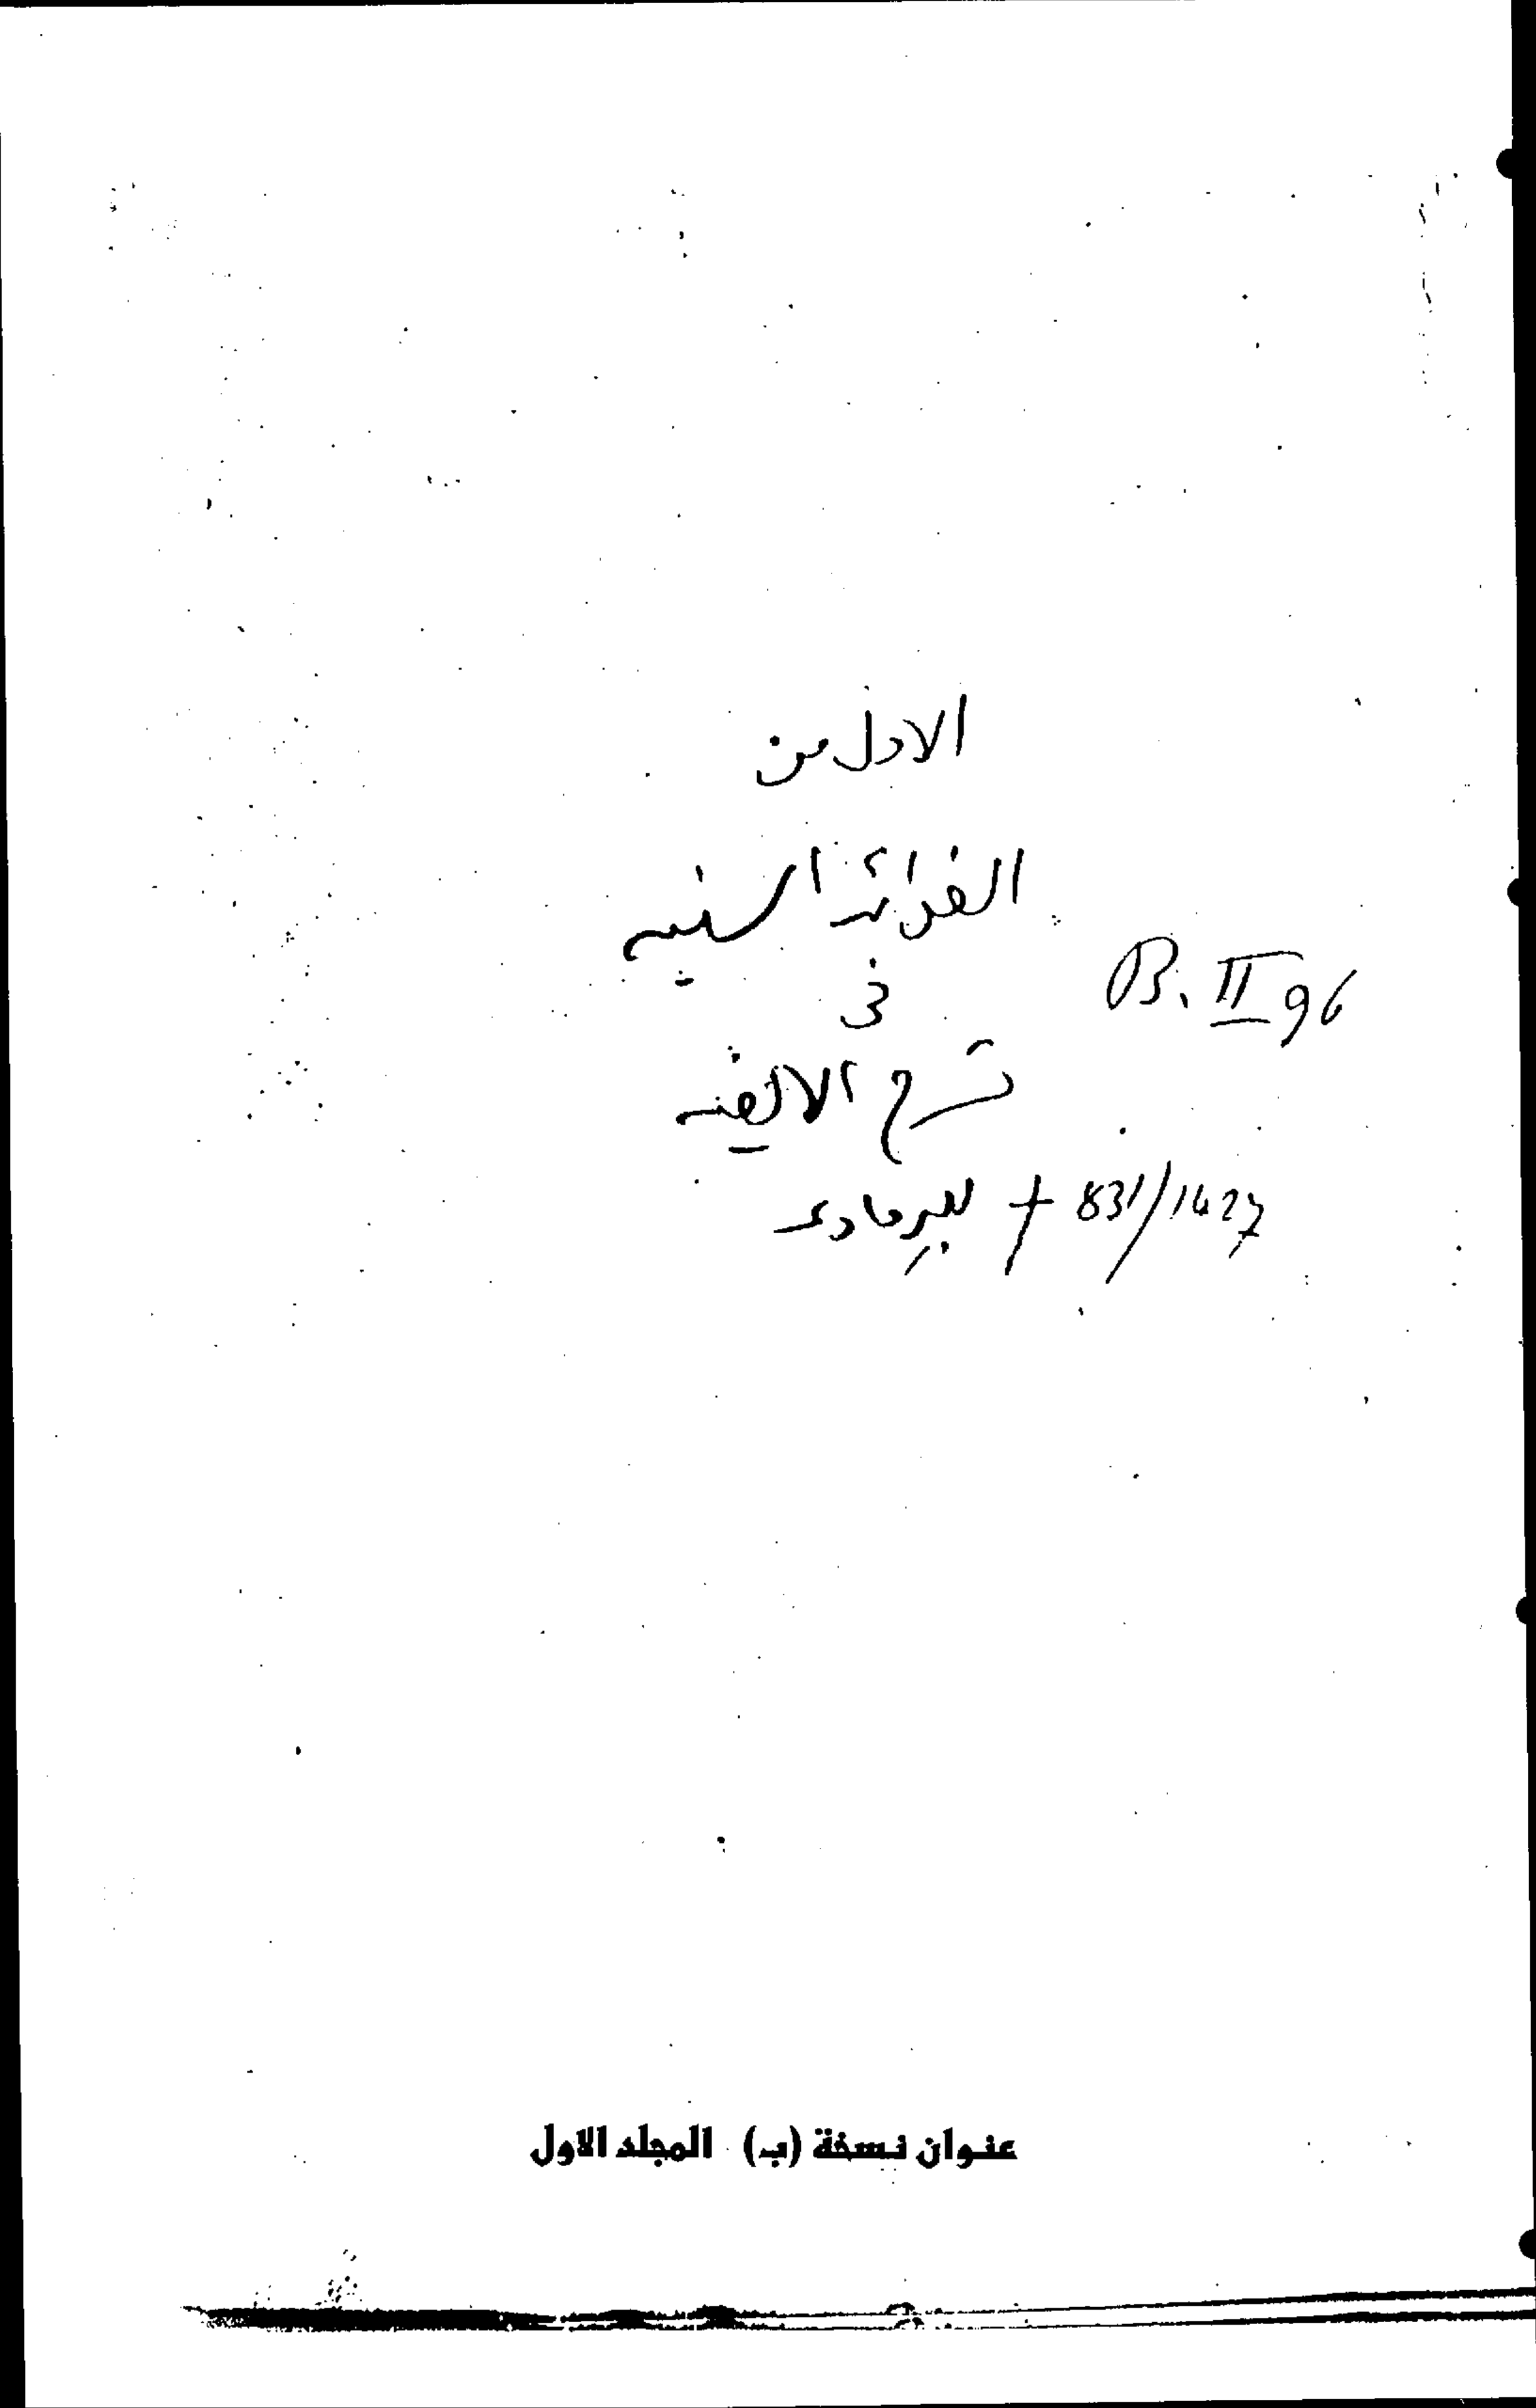 الاول من
الفوائد السنيه
B. II 96
فى
شرح الالفيه
للبرماوى + 831/1427
عنوان نسخة (ب) المجلد الاول